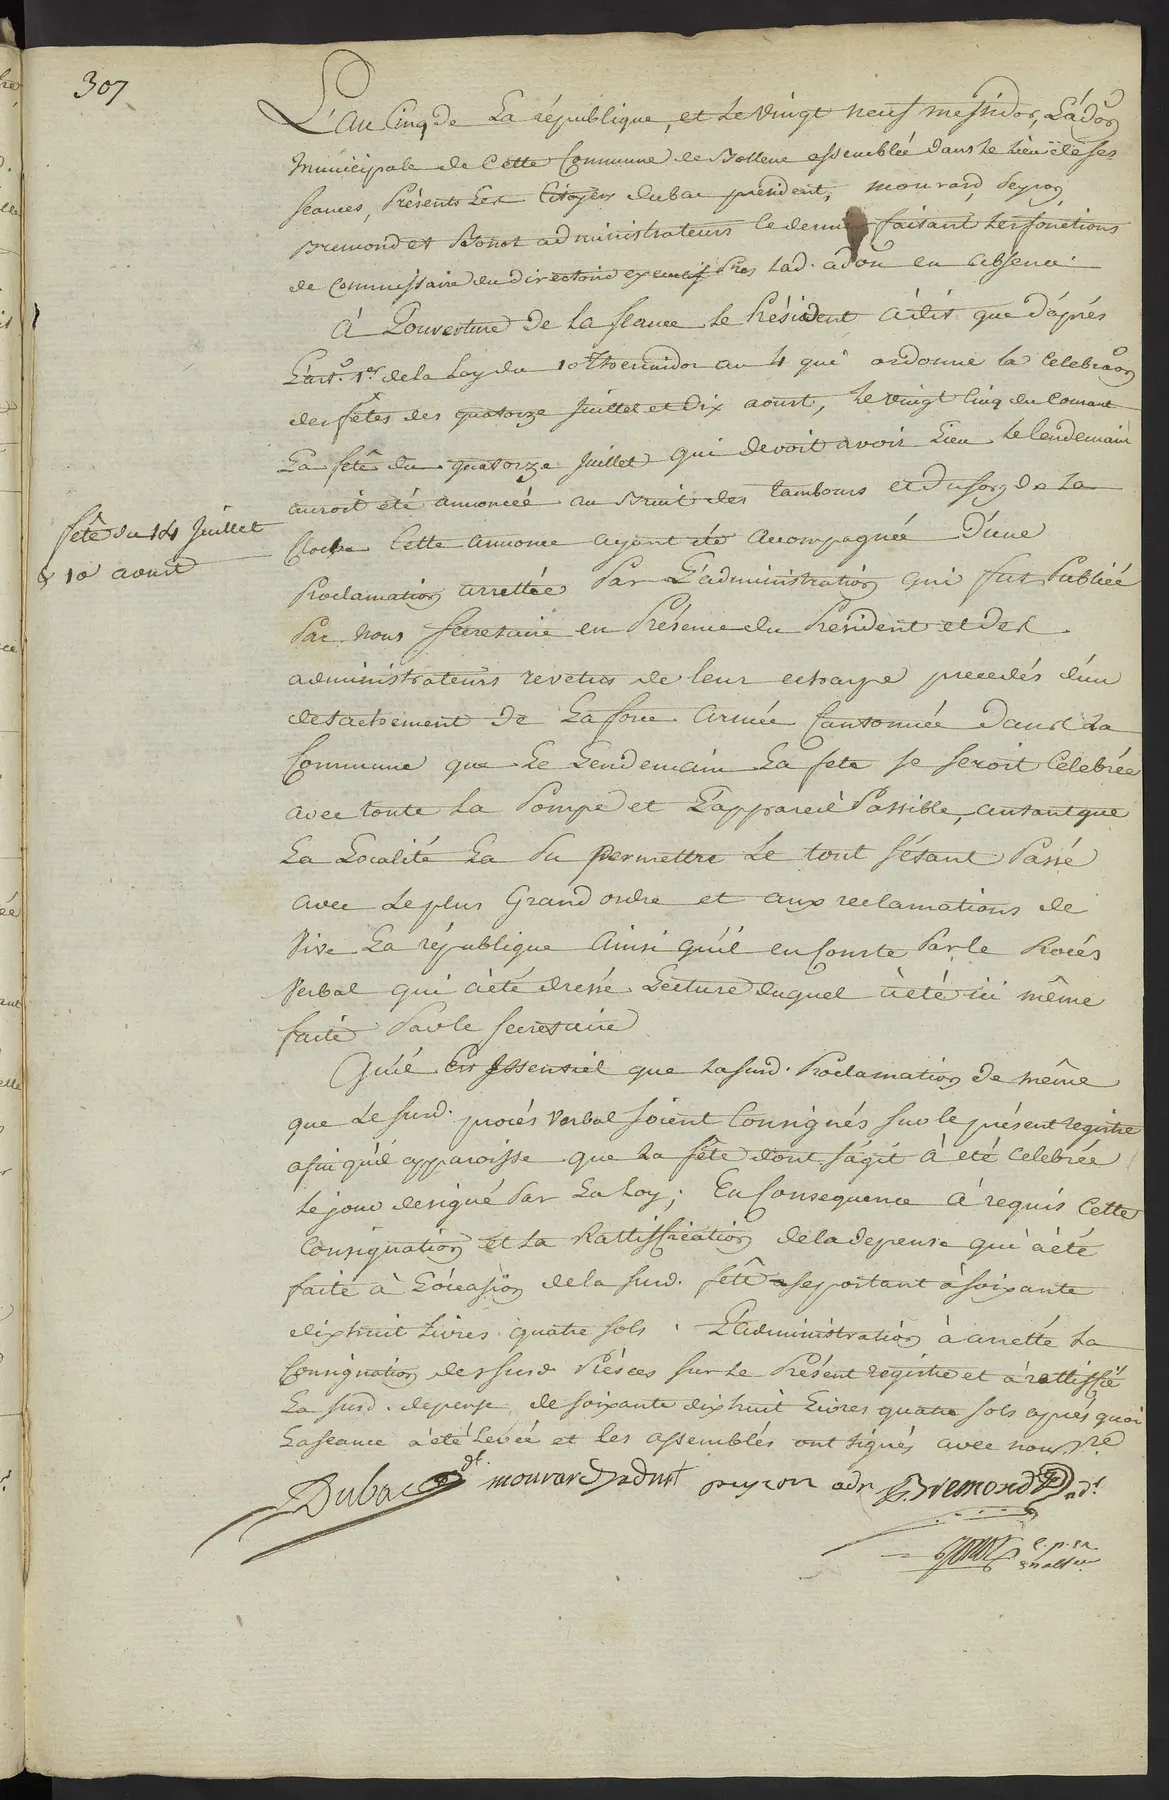 307
L'an Cinq de La république, et le vingt neuf messidor, L'ad.on
Municipale de Cette Commune de Bollene assemblée dans le lieu de ses
seances, Présents Les Citoyens dubac président, mourard, peyron,
Bremond et Bonot administrateurs le dernier faisant les fonctions
de Commissaire du directoire executif Près lad. adon en absence
À L'ouverture de la seance le Président à dit que d'après
L'art. 1er de la Loy du 10 thermidor an 4 qui ordonne la Celebraon
des fêtes des quatorze juillet et dix aoust, le vingt Cinq du Courant
La fête du quatorze juillet qui devoit avoir Lieu le lendemain
auroit été annoncée au Bruit des tambours et du son de La
fête du 14 juillet
& 10 aoust
Cloche Cette annonce ayant été accompagnée D'une
Proclamation arrettée Par L'administration qui fut Publiée
Par Nous Secretaire en Présence du Président et des
administrateurs revetus de leur echarpe precedés d'un
detachement de La force Armée Cantonnée dans La
Commune que Le Lendemain La fete se seroit Celebrée
avec toute La Pompe et L'appareil Possible, autant que
La Localité La Pu permettre Le tout s'étant Passé
avec le plus Grand ordre et aux reclamations de
Vive La république Ainsi qu'il en Conste Par le Procés
Verbal qui à été dressé Lecture duquel à été ici même
faite Par le secretaire
Qu'il Est Essensiel que la surd. Proclamation de même
que le surd. procés verbal soient Consignés sur le présent registre
afin qu'il apparoisse que la fête dont s'agit à été Celebrée
le jour designé Par La Loy; En Consequence à requis Cette
Consignation et La Rattiffication de la depense qui à été
faite à L'occasion de la surd. fête se portant à soixante
dix huit Livres quatre sols. L'administration à arretté La
Consignation des surd. Piéces sur Le Présent registre et à rattiffié
La surd. depense de soixante dix huit Livres quatre sols après quoi
La seance à été Levée et Les assemblés ont signés avec nous sre
Dubac dt mourard admt peyron adr Bremond adt
Bonot c. p. en